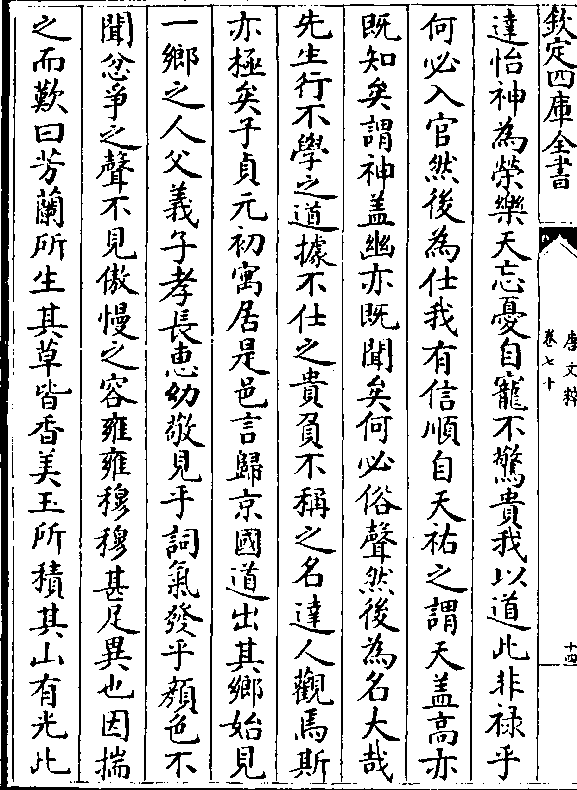 欽定四庫全書
唐文粹
卷七十
十四
達怡神為榮樂天忘憂自寵不驚貴我以道此非禄乎
何必入官然後為仕我有信順自天祐之謂天盖髙亦
既知矣謂神盖幽亦既聞矣何必俗聲然後為名大哉
先生行不學之道據不仕之貴負不稱之名達人觀焉斯
亦極矣予貞元初寓居是邑言歸京國道出其鄉始見
一鄉之人父義子孝長恵幼敬見乎詞氣發乎顔色不
聞忿爭之聲不見傲慢之容雍雍穆穆甚足異也因揣
之而歎曰芳蘭所生其草皆香美玉所積其山有光此